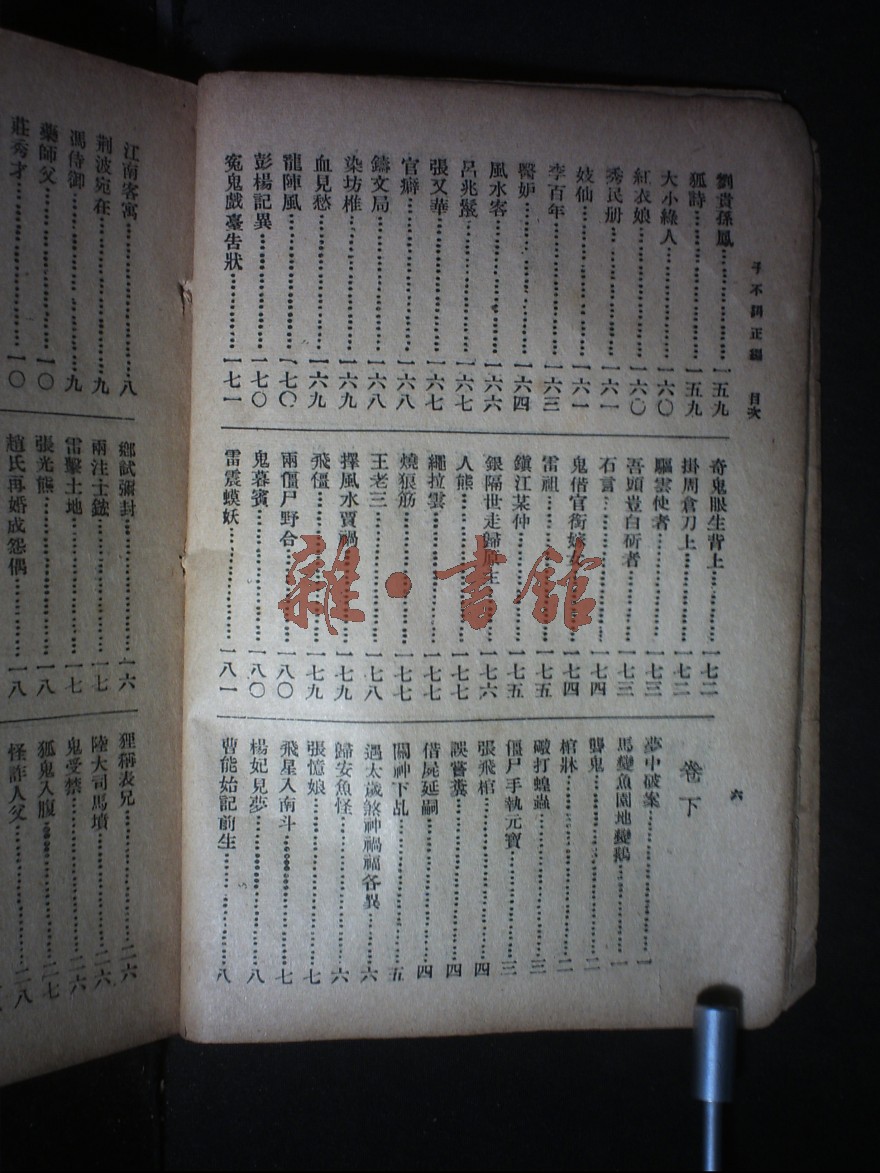 子不語正編 目次
六
劉貴孫鳳 一五九
狐詩 一五九
大小綠人 一六〇
紅衣娘 一六〇
秀民册 一六一
妓仙 一六一
李百年 一六三
醫妒 一六四
風水客 一六六
呂兆鬣 一六七
張又華 一六七
官癖 一六八
鑄文局 一六八
染坊椎 一六九
血見愁 一六九
龍陣風 一七〇
彭楊記異 一七〇
冤鬼戲臺告狀 一七一
奇鬼眼生背上 一七二
掛周倉刀上 一七二
驅雲使者 一七三
吾頭豈白斫者 一七三
石言 一七四
鬼借官銜嫁女 一七四
雷祖 一七五
鎮江某仲 一七五
銀隔世走歸原主 一七六
人熊 一七七
繩拉雲 一七七
燒狼筋 一七七
王老三 一七八
擇風水賈禍 一七九
飛僵 一七九
兩僵尸野合 一八〇
鬼幕賓 一八〇
雷震蟆妖 一八一
卷下
夢中破案 一
馬變魚園地變鵝 一
聾鬼 二
棺牀 二
礮打蝗蟲 三
僵尸手執元寶 三
張飛棺 四
誤嘗糞 四
借屍延嗣 四
關神下乩 五
遇太歲煞神禍福各異 六
歸安魚怪 六
張憶娘 七
飛星入南斗 七
楊妃見夢 八
曹能始記前生 八
江南客寓 八
荆波宛在 九
馮侍御 九
藥師父 一〇
莊秀才 一〇
鄉試彌封 一六
兩汪士鋐 一七
雷擊土地 一七
張光熊 一八
趙氏再婚成怨偶 一八
狸稱表兄 二六
陸大司馬墳 二六
鬼受禁 二六
狐鬼入腹 二七
怪詐人父 二八
雜·書館